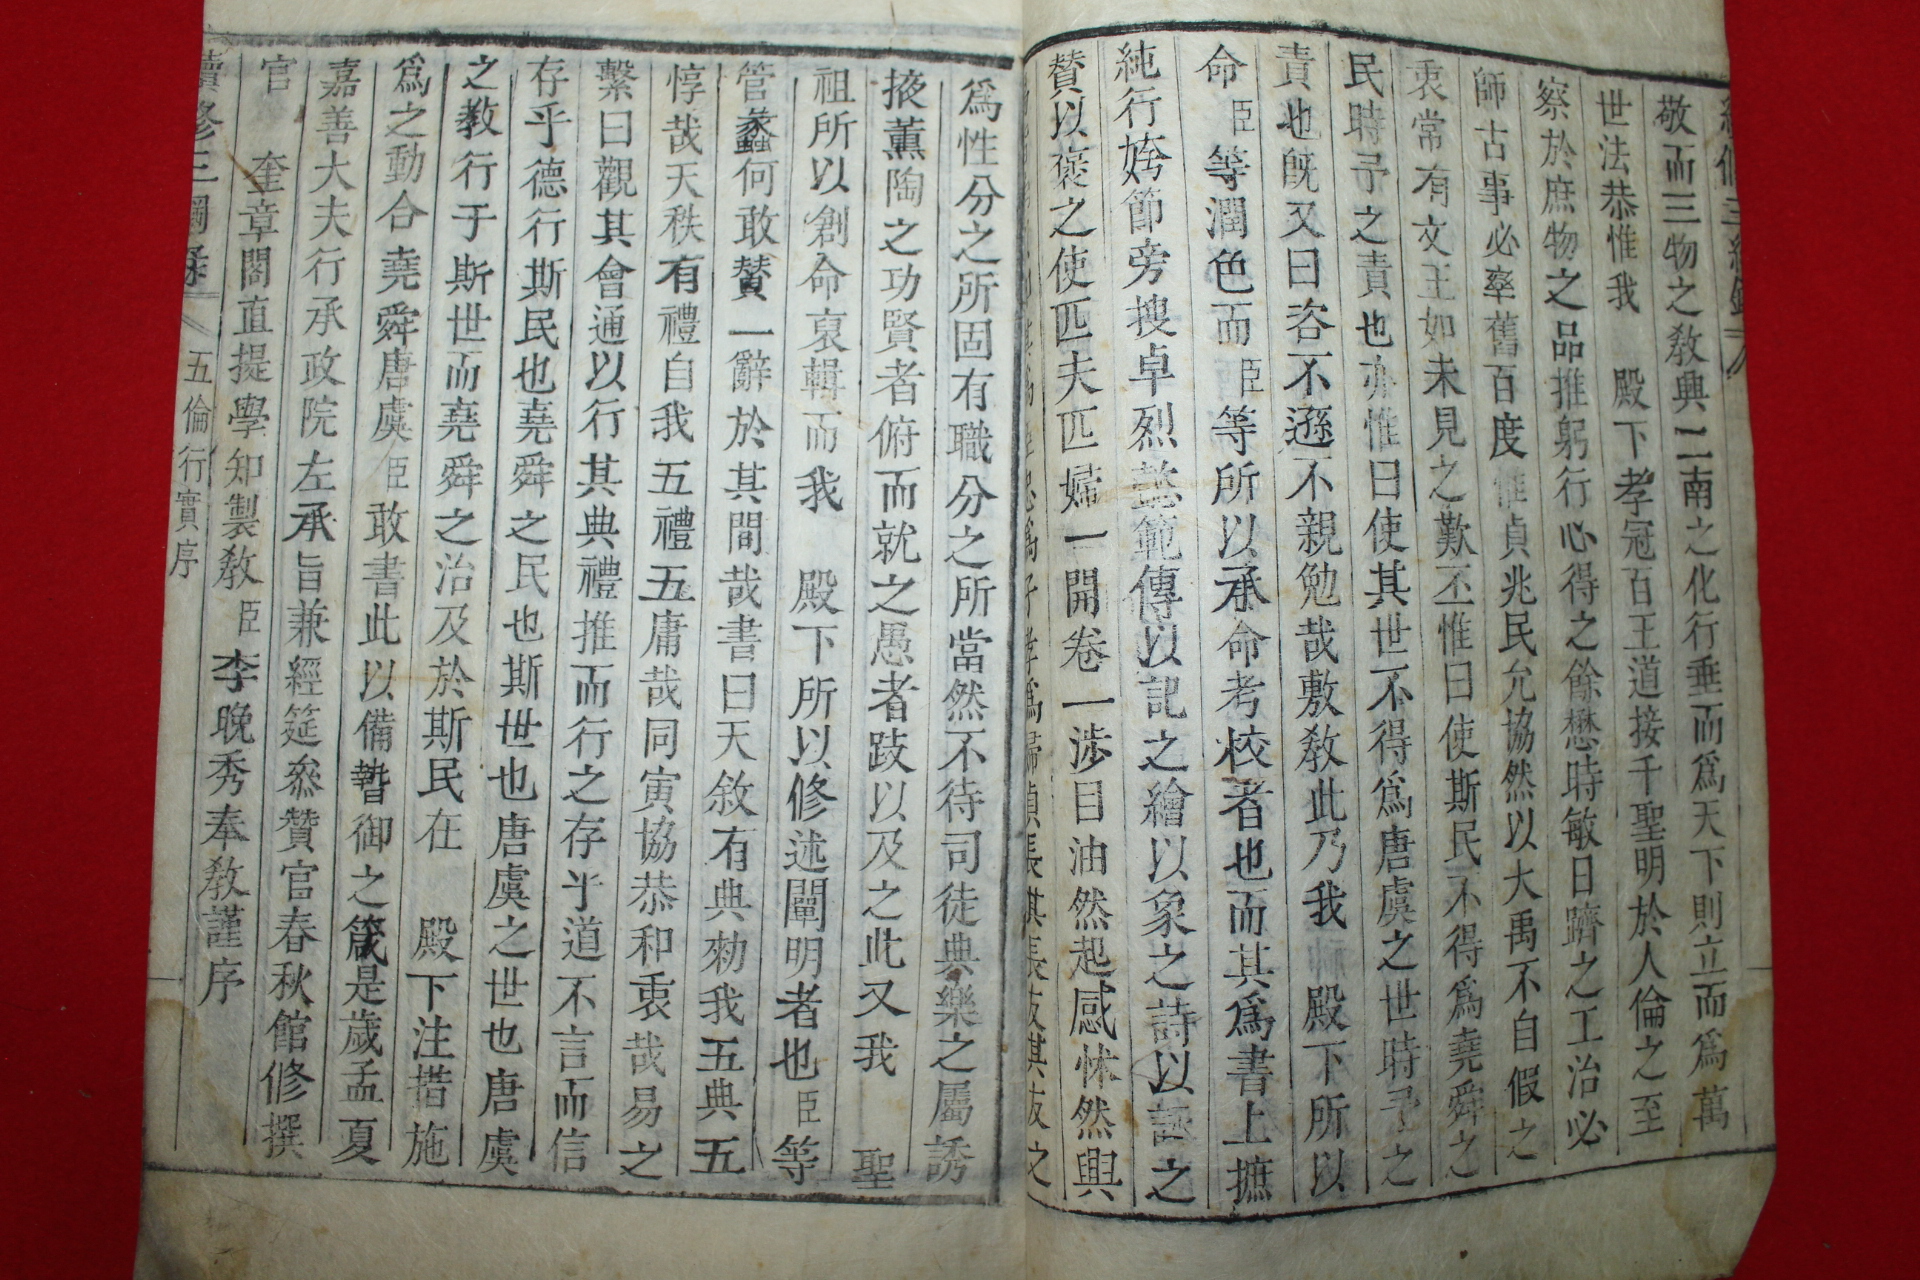 敬而三物之敎興二南之化行垂而爲天下則立而爲萬
世法恭惟我 殿下孝冠百王道接千聖明於人倫之至
察於庶物之品推躬行心得之餘懋時敏日躋之工治必
師古事必率舊百度惟貞兆民允協然以大禹不自假之
衷常有文王如未見之歎丕惟曰使斯民不得爲堯舜之
民時予之責也亦惟曰使其世不得爲唐虞之世時予之
責也旣又曰咨不遜不親勉哉敷敎此乃我 殿下所以
命臣等潤色而臣等所以承命考校者也而其爲書上摭
純行姱節旁搜卓烈懿範傳以記之繪以象之詩以詠之
贊以褒之使匹夫匹婦一開卷一涉目油然起感怵然興
爲性分之所固有職分之所當然不待司徒典樂之屬誘
掖薰陶之功賢者俯而就之愚者跂以及之此又我 聖
祖所以創命裒輯而我 殿下所以修述闡明者也臣等
管蠡何敢贊一辭於其間哉書曰天敘有典勑我五典五
惇哉天秩有禮自我五禮五庸哉同寅協恭和衷哉易之
繫曰觀其會通以行其典禮推而行之存乎道不言而信
存乎德行斯民也堯舜之民也斯世也唐虞之世也唐虞
之教行于斯世而堯舜之治及於斯民在 殿下注措施
爲之動合堯舜唐虞臣敢書此以備暬御之箴是歲孟夏
嘉善大夫行承政院左承旨兼經筵叅贊官春秋館修撰
官 奎章閣直提學知製敎臣李晚秀奉敎謹序
續修三綱錄 五倫行實序